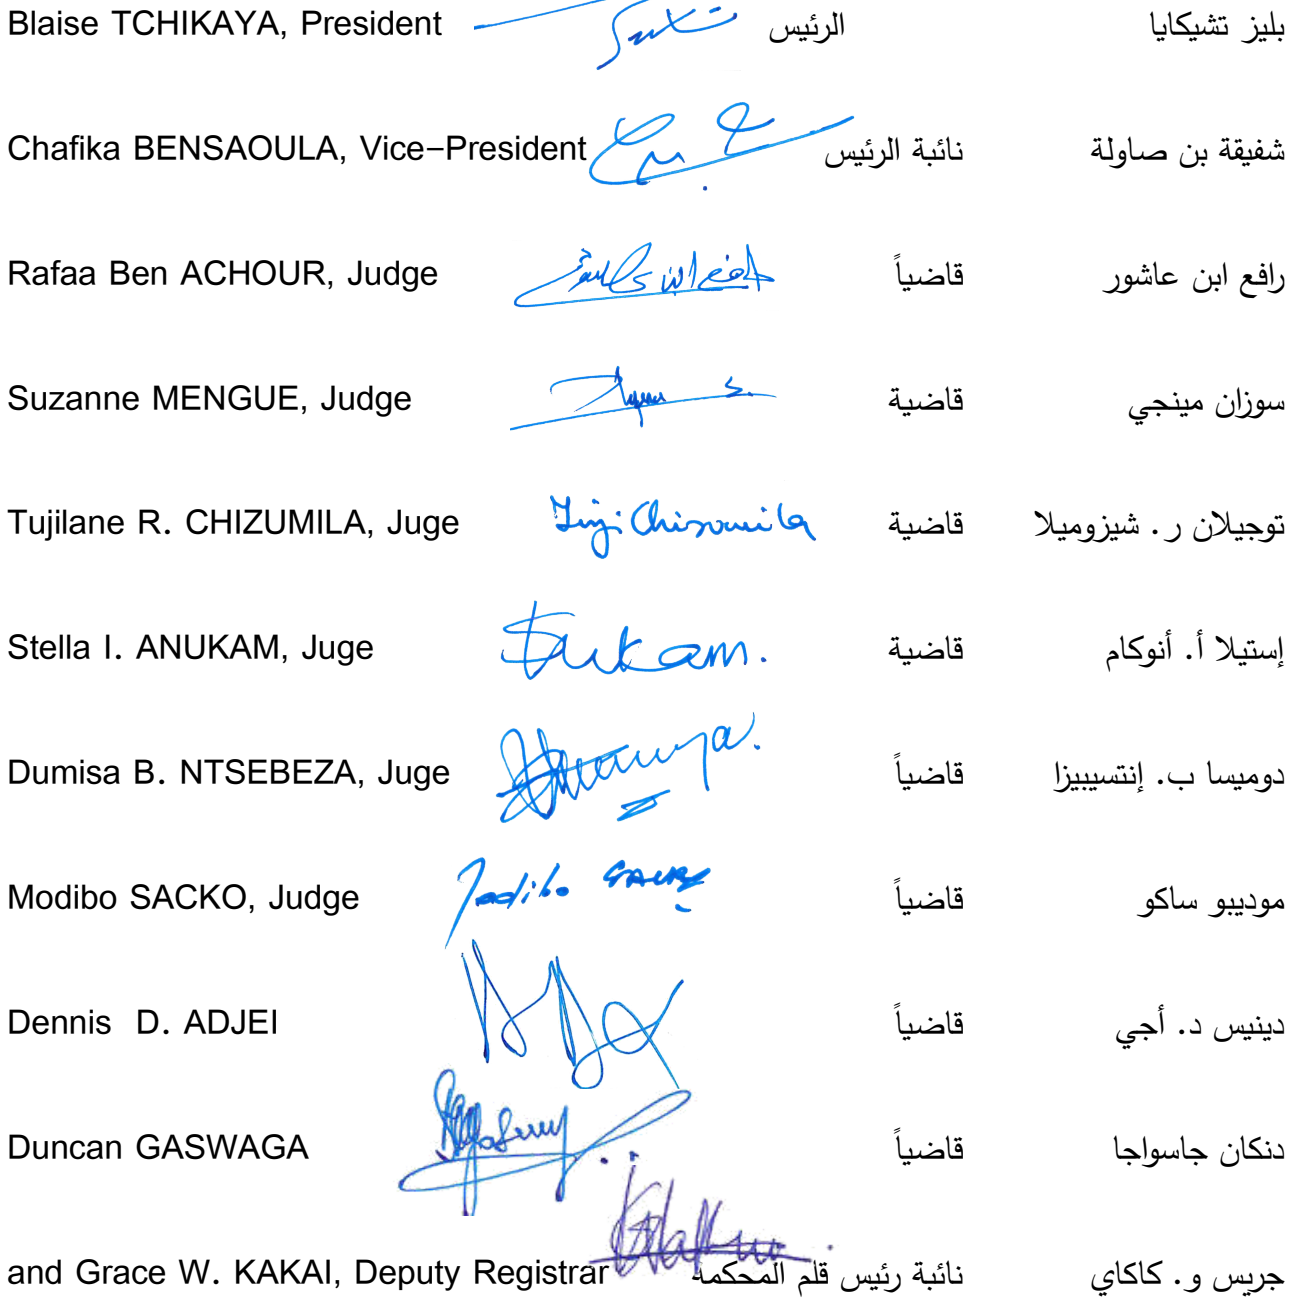 Blaise TCHIKAYA, President الرئيس بليز تشيكايا
Chafika BENSAOULA, Vice-President نائبة الرئيس شفيقة بن صاولة
Rafaa Ben ACHOUR, Judge قاضياً رافع ابن عاشور
Suzanne MENGUE, Judge قاضية سوزان مينجي
Tujilane R. CHIZUMILA, Juge قاضية توجيلان ر. شيزوميلا
Stella I. ANUKAM, Juge قاضية إستيلا أ. أنوكام
Dumisa B. NTSEBEZA, Juge قاضياً دوميسا ب. إنتسيبيزا
Modibo SACKO, Judge Modibo SACKO قاضياً موديبو ساكو
Dennis D. ADJEI قاضياً دينيس د. أجي
Duncan GASWAGA قاضياً دنكان جاسواجا
and Grace W. KAKAI, Deputy Registrar نائبة رئيس قلم المحكمة جريس و. كاكاي